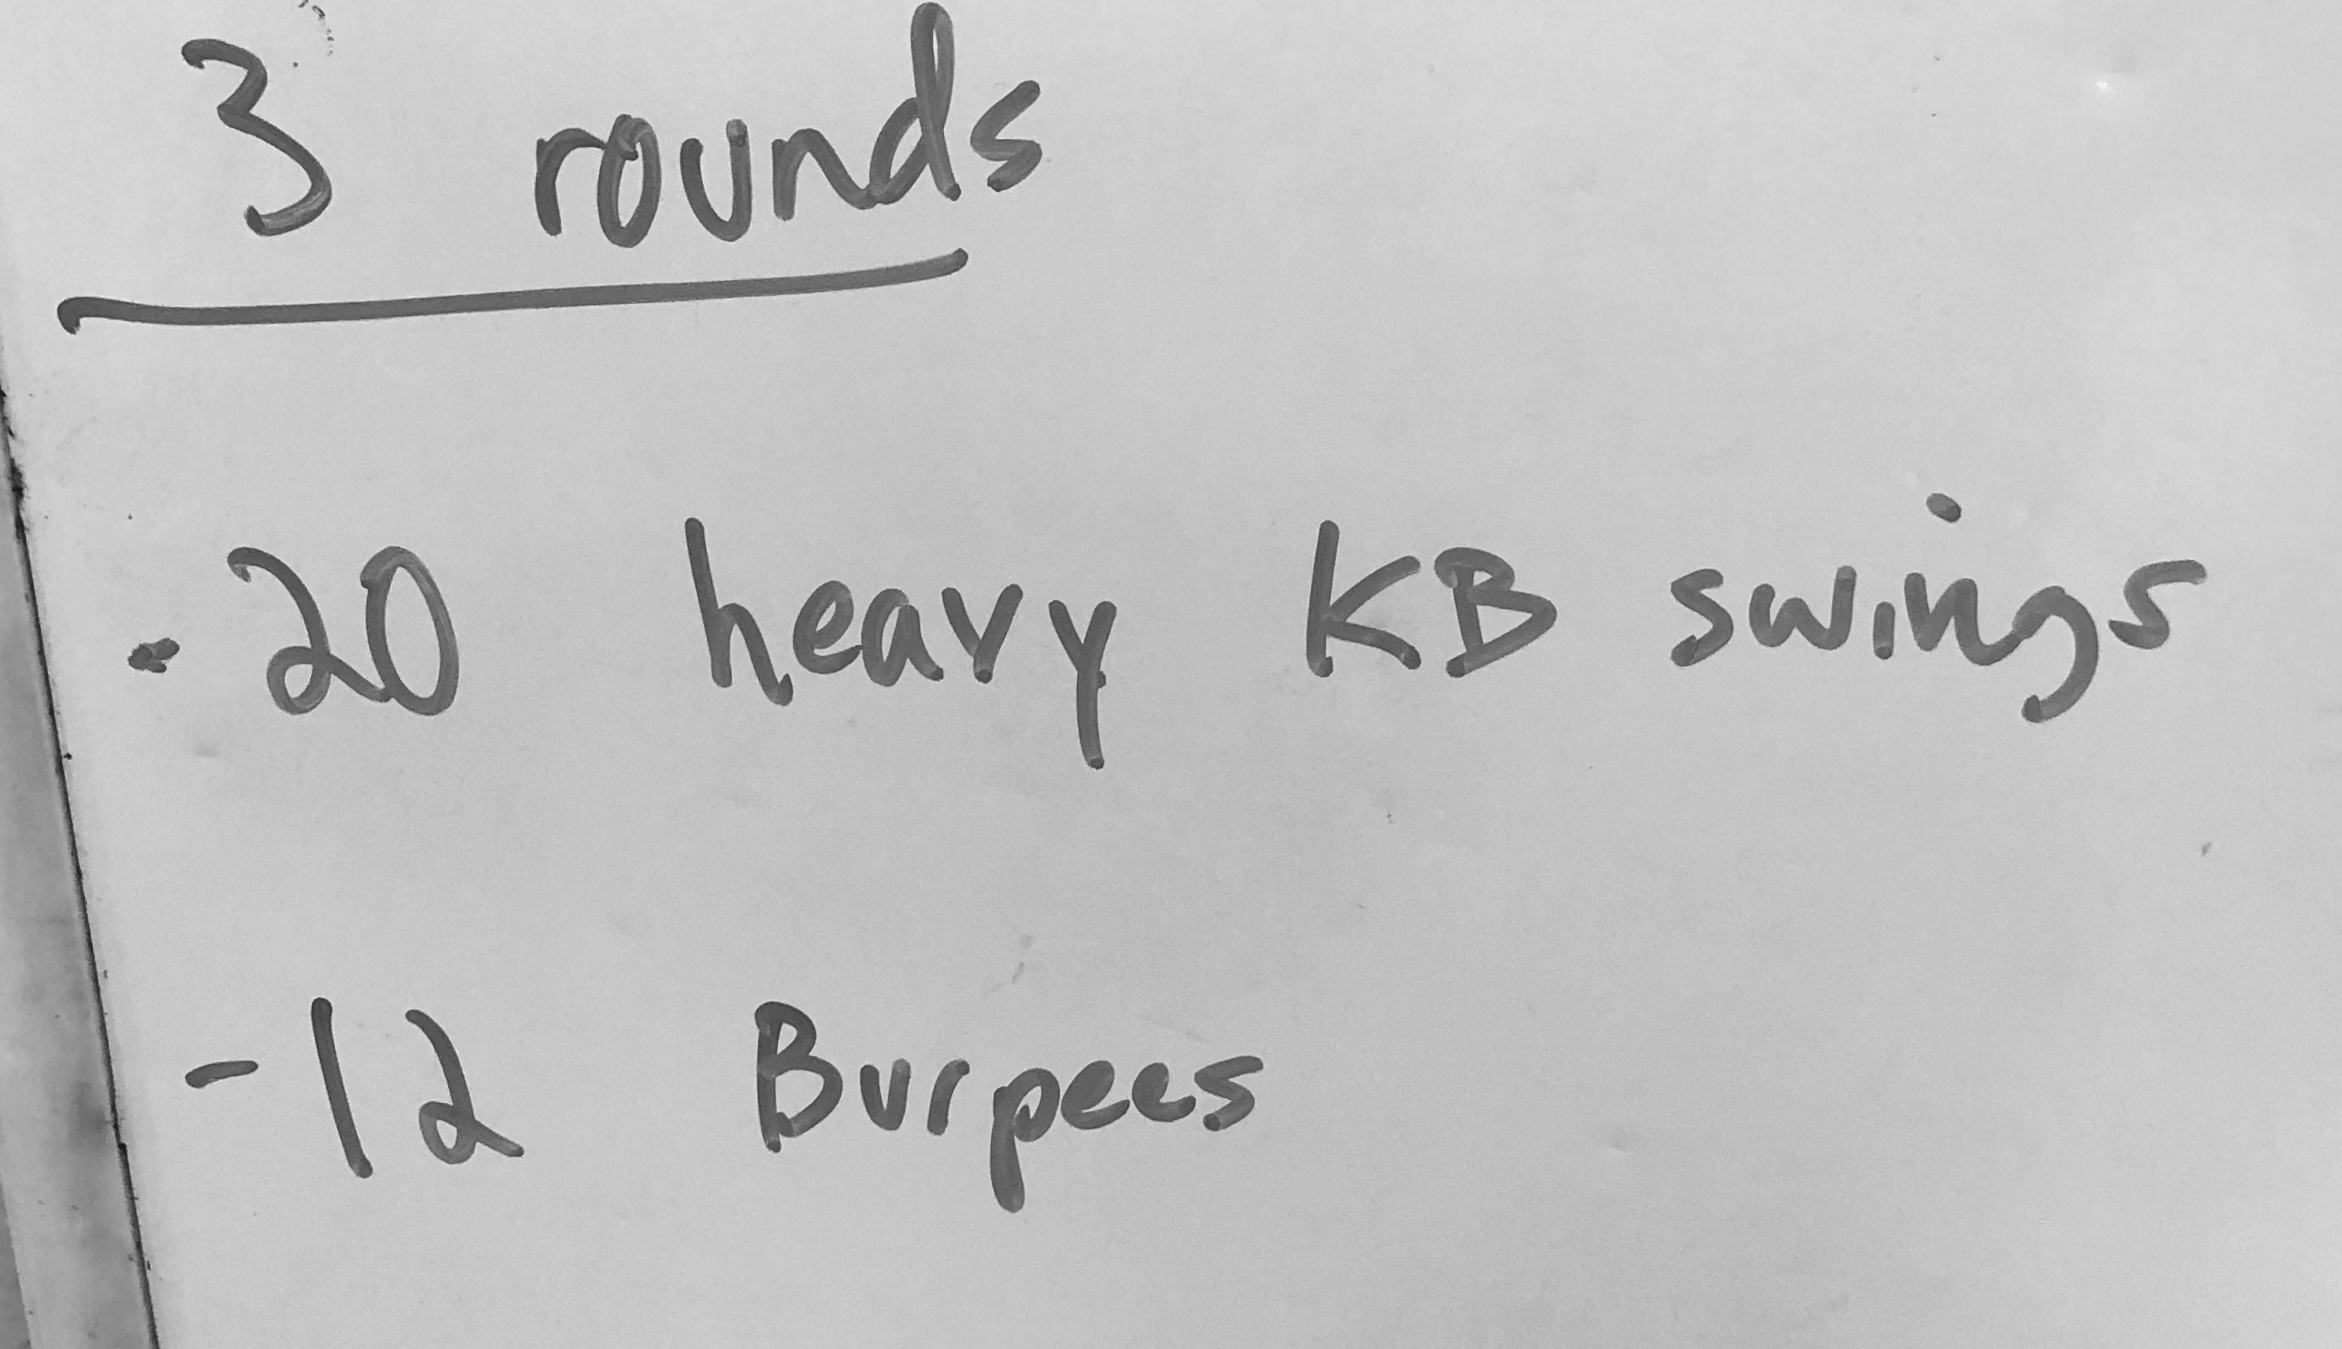 3 rounds
-20 heavy KB swings
-12 Burpees